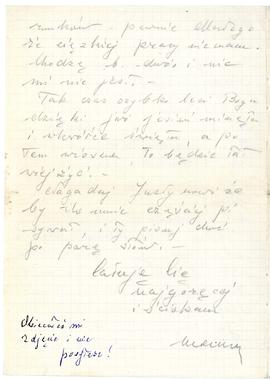 runków - pewnie dlatego
że ciężkiej pracy nie mam.
Chodzę b. dużo i nic
mi nie jest. -
Tak czas szybko leci Bogu
dzięki już jesień minęła
i wkrótce święta, a po
tem wiosna, to będzie ła
wiej żyć. -
Zagadaj Justynowi że
by do mnie częściej pi
sywał, i Ty pisuj choć
po parę słów. -
Całuję Cię
najgoręcej
i ściskam
Obiecałeś mi
zdjęcie i nie
posyłasz!